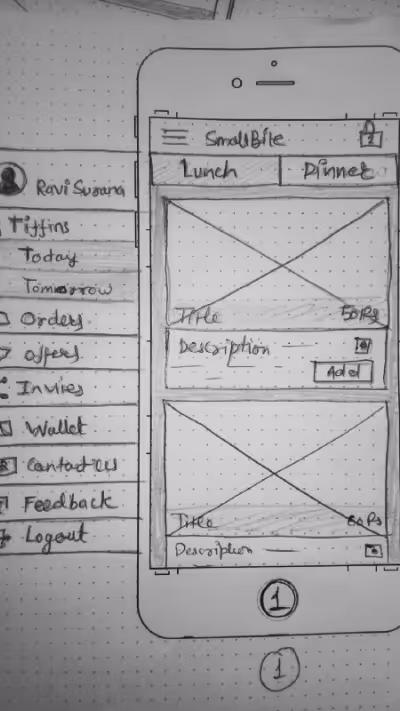 SmallBite
2
Lunch
Dinner
Ravi Surana
Tiffins
Today
Tomorrow
Orders
offers
Invies
Wallet
Contact us
Feedback
Logout
Title
50Rs
Description
Add
Title
60Rs
Description
1
1